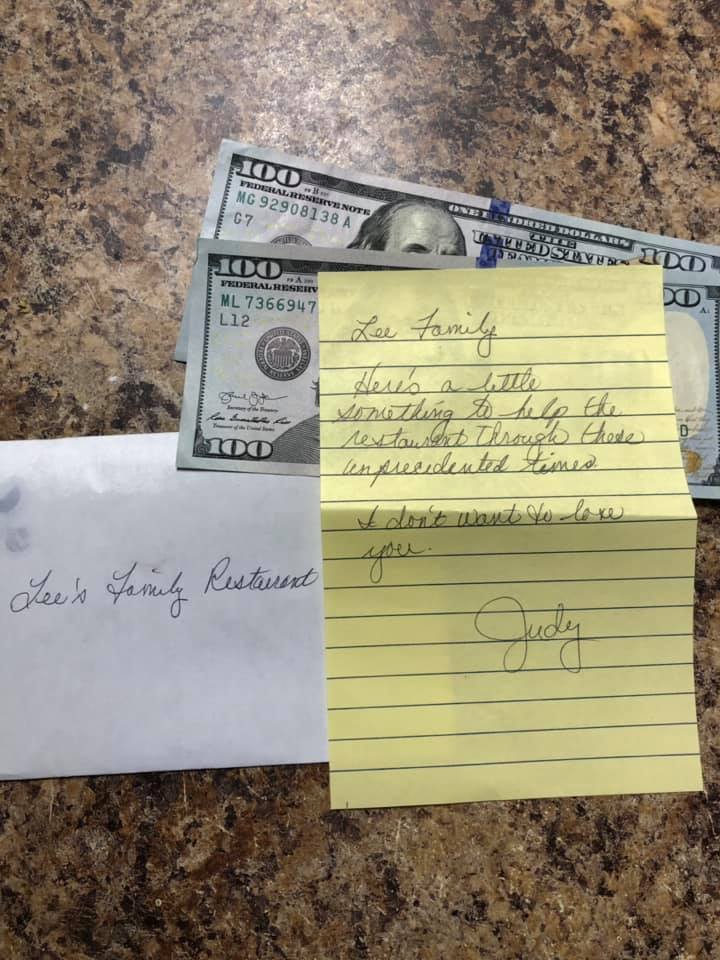 100
FEDERAL RESERVE NOTE
MG 92908138 A
G7
ONE HUNDRED DOLLARS
THE
UNITED STATES
100
100
FEDERAL RESERV
ML 7366947
L12
Secretary of the Treasury
Treasurer of the United States
100
00
Lee Family
Here's a little
something to help the
restaurant Through these
unprecidented times.
I don't want to lose
you.
Judy
Lee's Family Restaurant